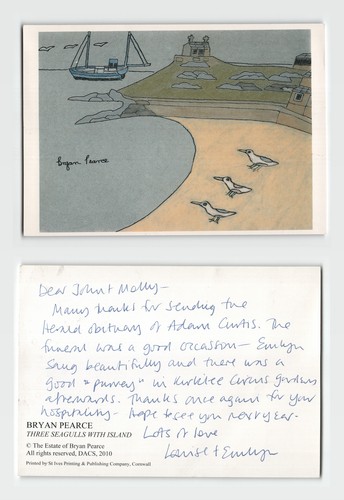 Bryan Pearce
Dear John + Molly -
Many thanks for sending the
Herald obituary of Adam Curtis. The
funeral was a good occasion - Emlyn
sang beautifully and there was a
good "purvey" in Kirklee Circus gardens
afterwards. Thanks once again for your
hospitality - hope to see you next year.
Lots of love
Louise + Emlyn
BRYAN PEARCE
THREE SEAGULLS WITH ISLAND
© The Estate of Bryan Pearce
All rights reserved, DACS, 2010
Printed by St Ives Printing & Publishing Company, Cornwall